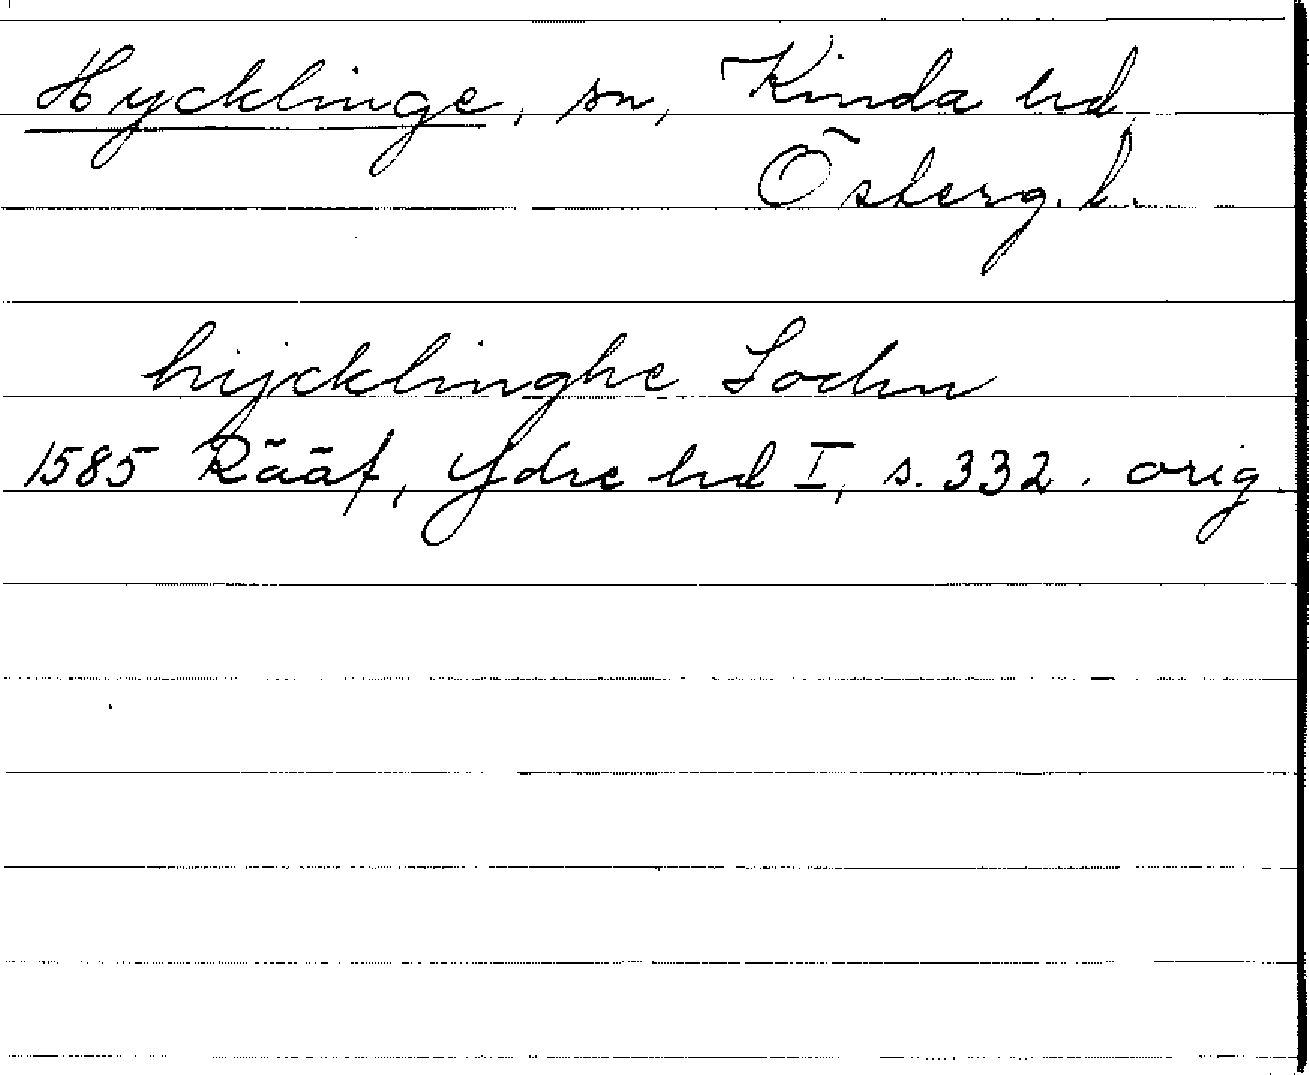 Hycklinge, sn, Kinda hd
Österg. l.
hijcklinghe Sochn
1585 Rääf, Ydre hd I, s. 332. orig.